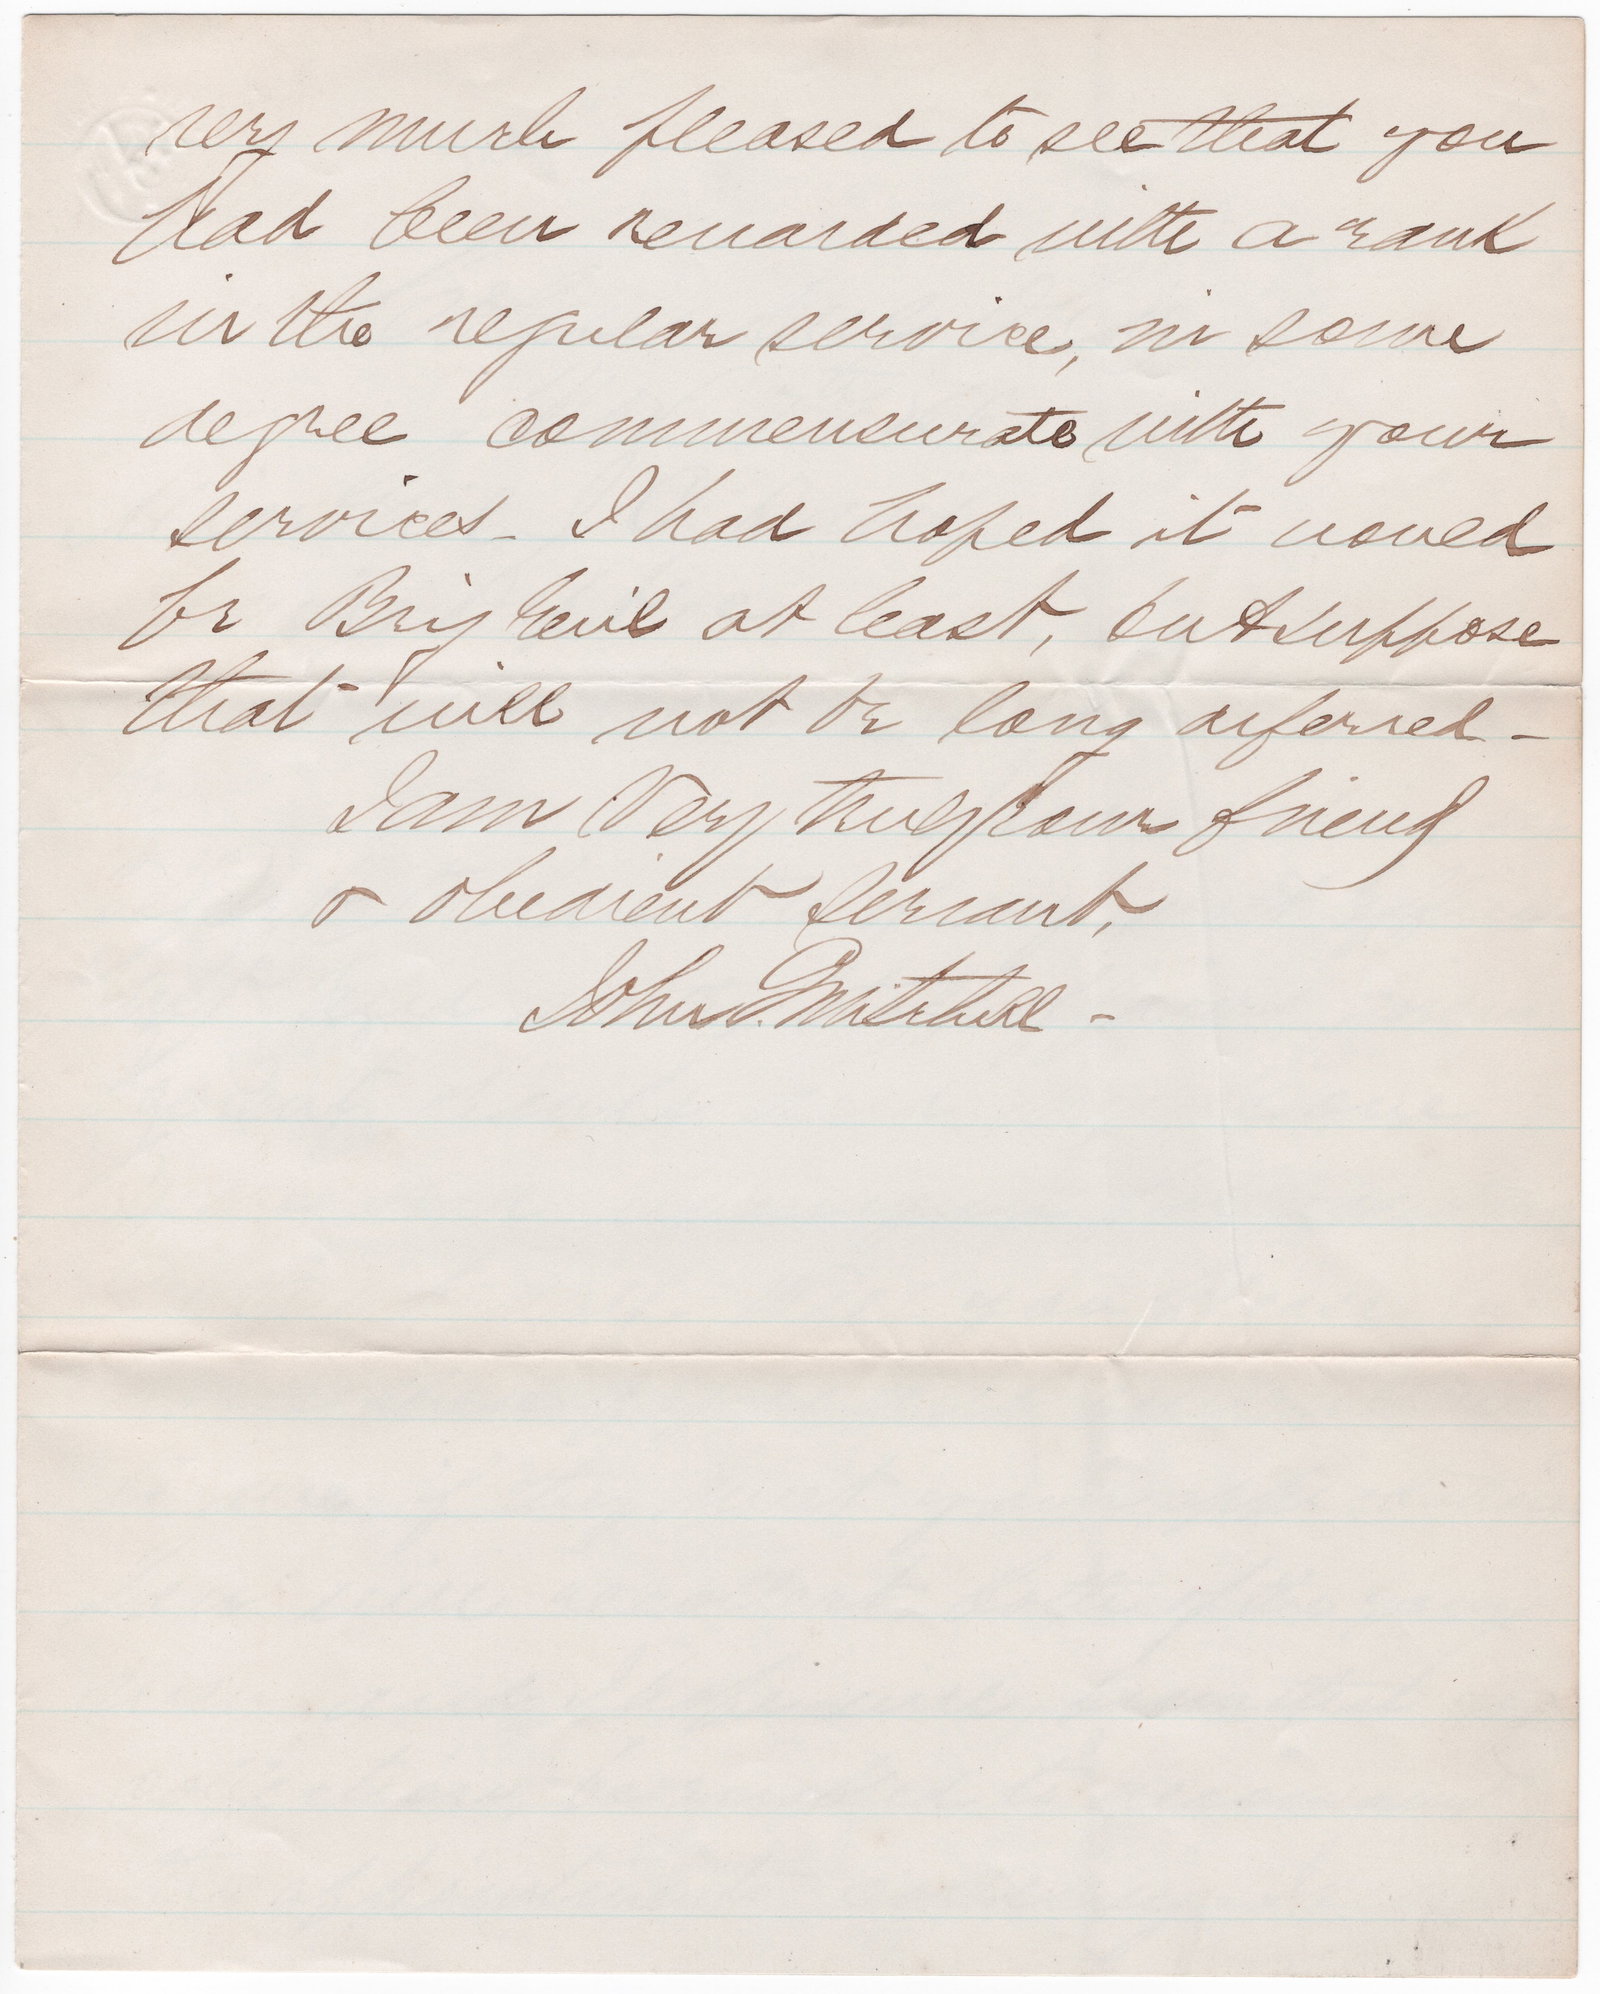 very much pleased to see that you
had been rewarded with a rank
in the regular service, in some
degree commensurate with your
services - I had hoped it would
be Brig Genl at least, but suppose
that will not be long deferred -
I am Very truly Your friend
& obedient servant,
John Mitchell -